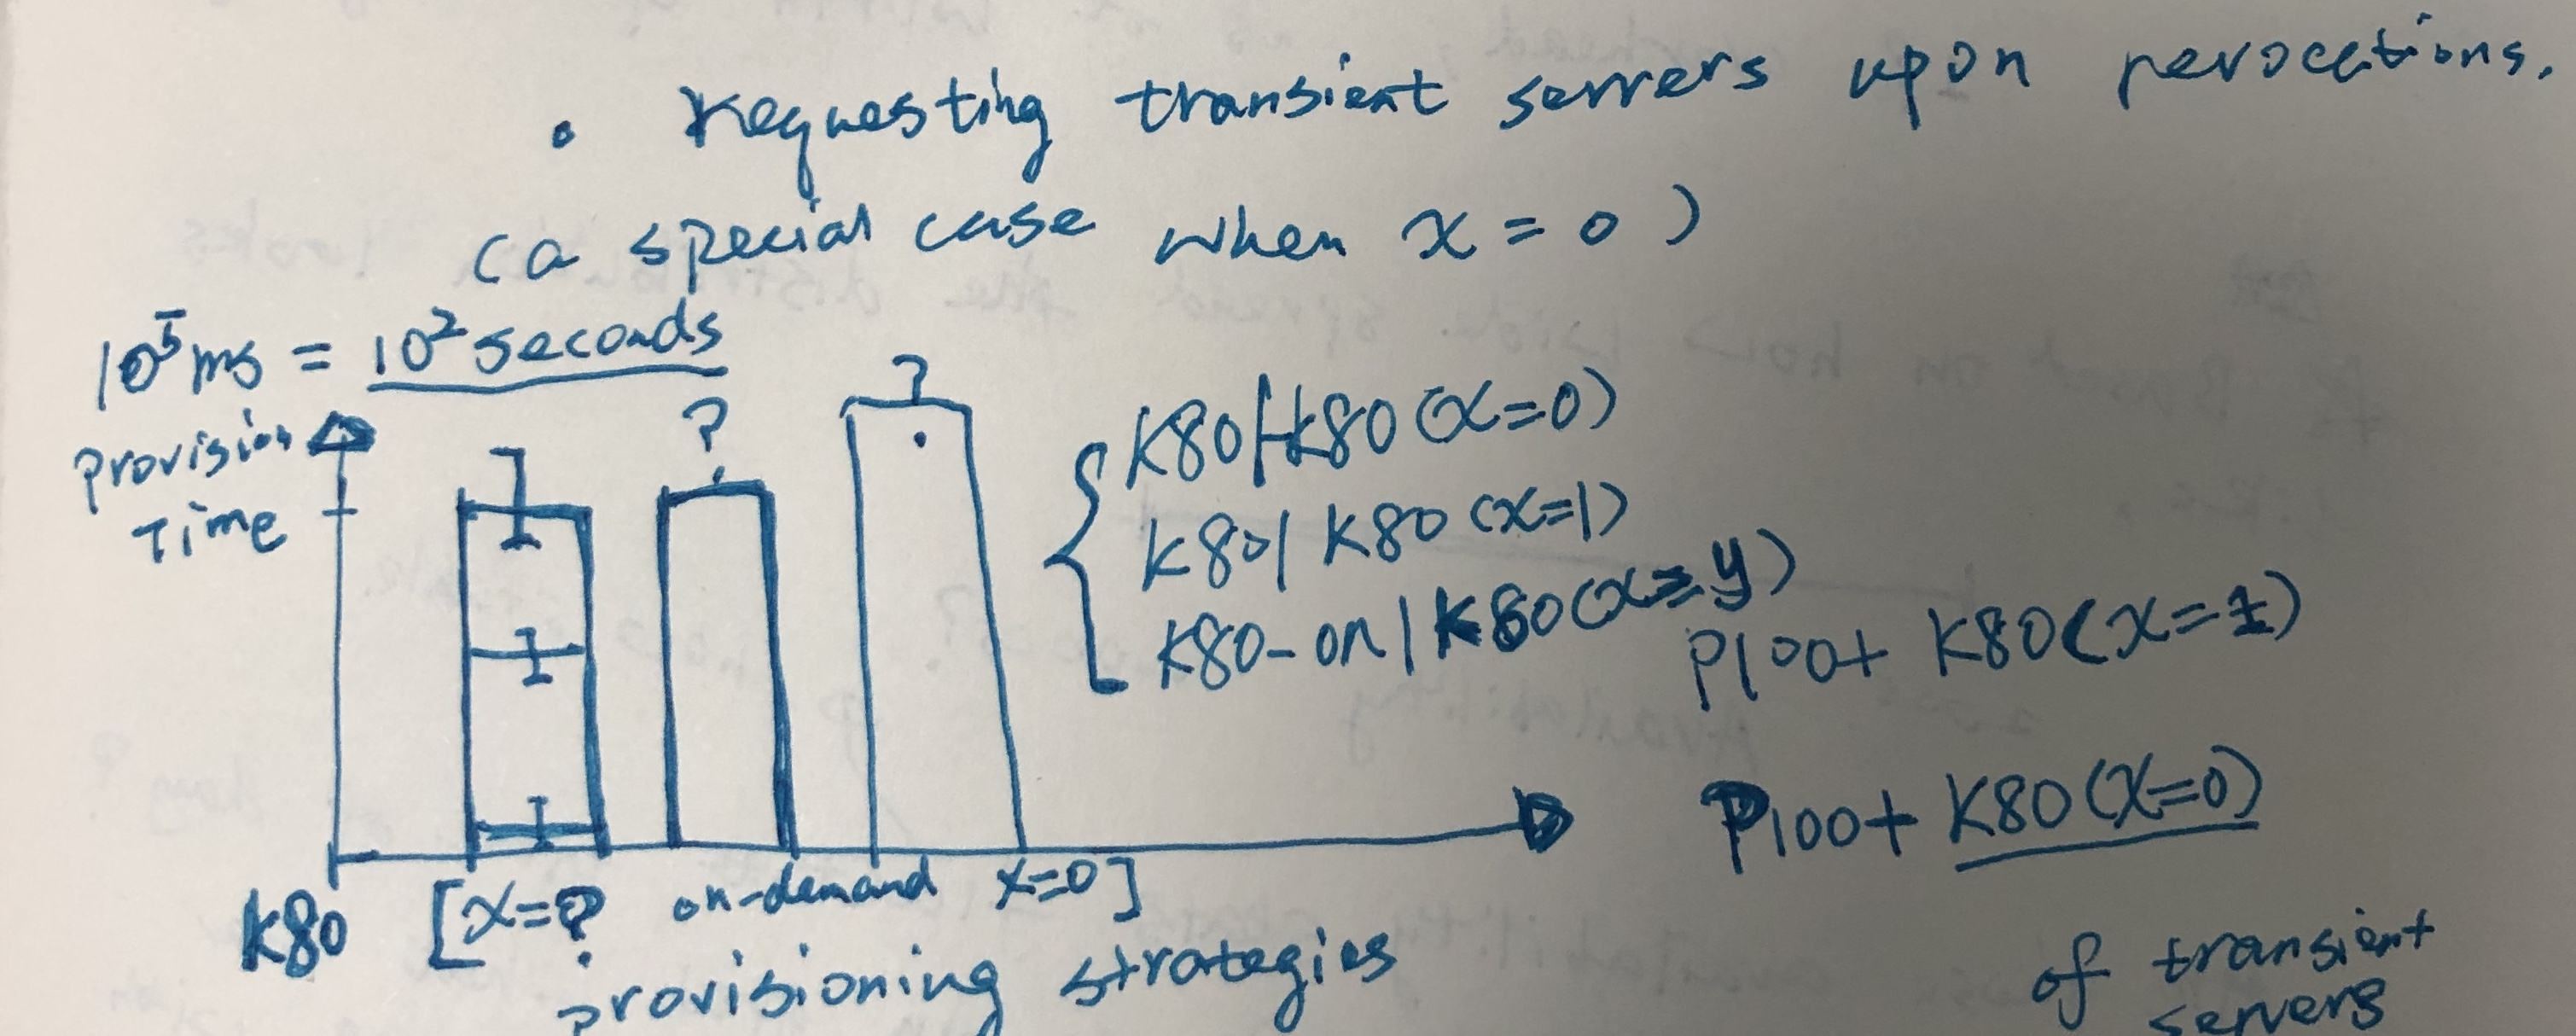 • Requesting transient servers upon revocations.
(a special case when x = 0 )
10⁵ms = 10² seconds
provision
Time
?
?
K80 | K80 (x=0)
K80 | K80 (x=1)
K80-on | K80 (x=y)
P100+ K80 (x=1)
P100+ K80 (x=0)
K80 [x=? on-demand x=0]
provisioning strategies
of transient
servers